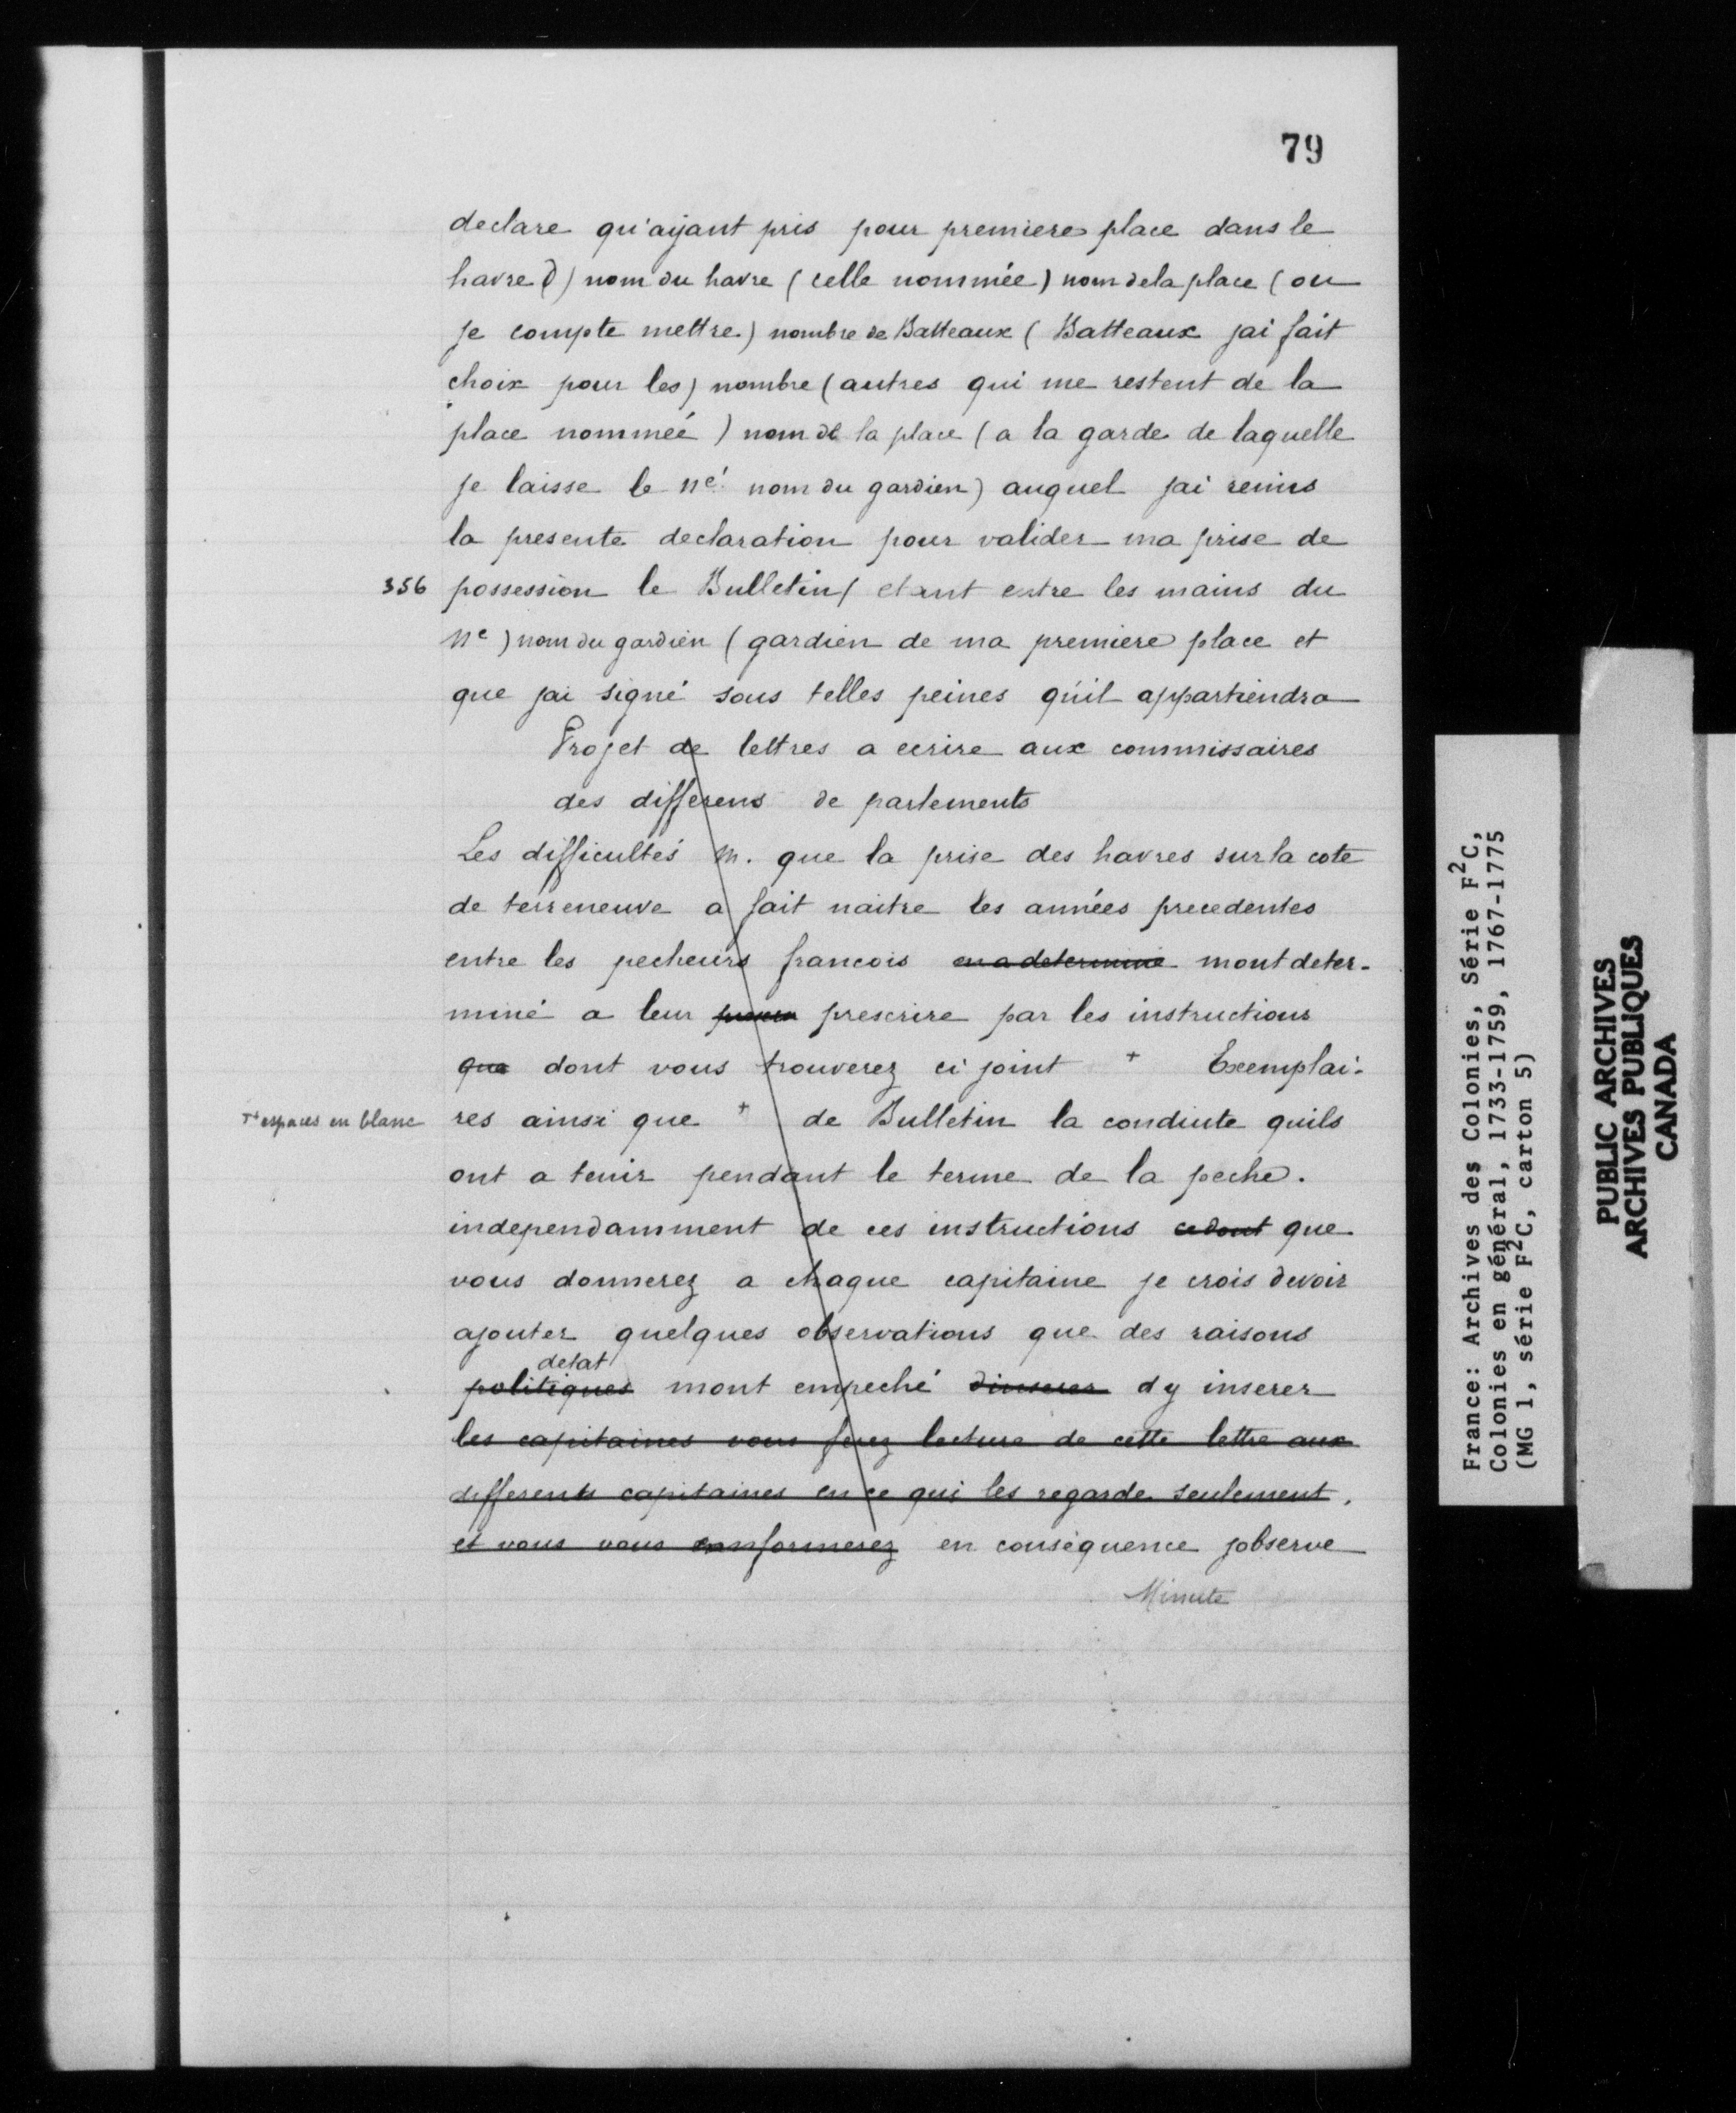 79
declare qu'ayant pris pour premiere place dans le
havre d) nom du havre (celle nommée) nom dela place (ou
je compte mettre) nombre de Batteaux (Batteaux jai fait
choix pour les) nombre (autres qui me restent de la
place nommeé) nom de la place (a la garde de laquelle
je laisse le né nom du gardien) auquel jai remis
la presente declaration pour valider ma prise de
356 possession le Bulletin/ etant entre les mains du
ne) nom du gardien (gardien de ma premiere place et
que jai signé sous telles peines qúil appartiendra
Projet de lettres a ecrire aux commissaires
des differens de partements
Les difficultés m. que la prise des havres sur la cote
de terreneuve a fait naitre les années precedentes
entre les pecheurs francois en a determiné mont deter-
miné a leur prescrire par les instructions
que dont vous trouverez ci joint + Exemplai-
++ espaces en blanc res ainsi que + de Bulletin la conduite quils
ont a tenir pendant le terme de la peche.
independamment de ces instructions que
vous donnerez a chaque capitaine je crois devoir
ajouter quelques observations que des raisons
detat
politiques mont empeché dinserer dy inserer
les capitaines vous ferez lecture de cette lettre aux
differents capitaines en ce qui les regarde seulement,
et vous vous conformerez en conséquence jobserve
Minute
France: Archives des Colonies, Série F²C,
Colonies en général, 1733-1759, 1767-1775
(MG 1, série F²C, carton 5)
PUBLIC ARCHIVES
ARCHIVES PUBLIQUES
CANADA